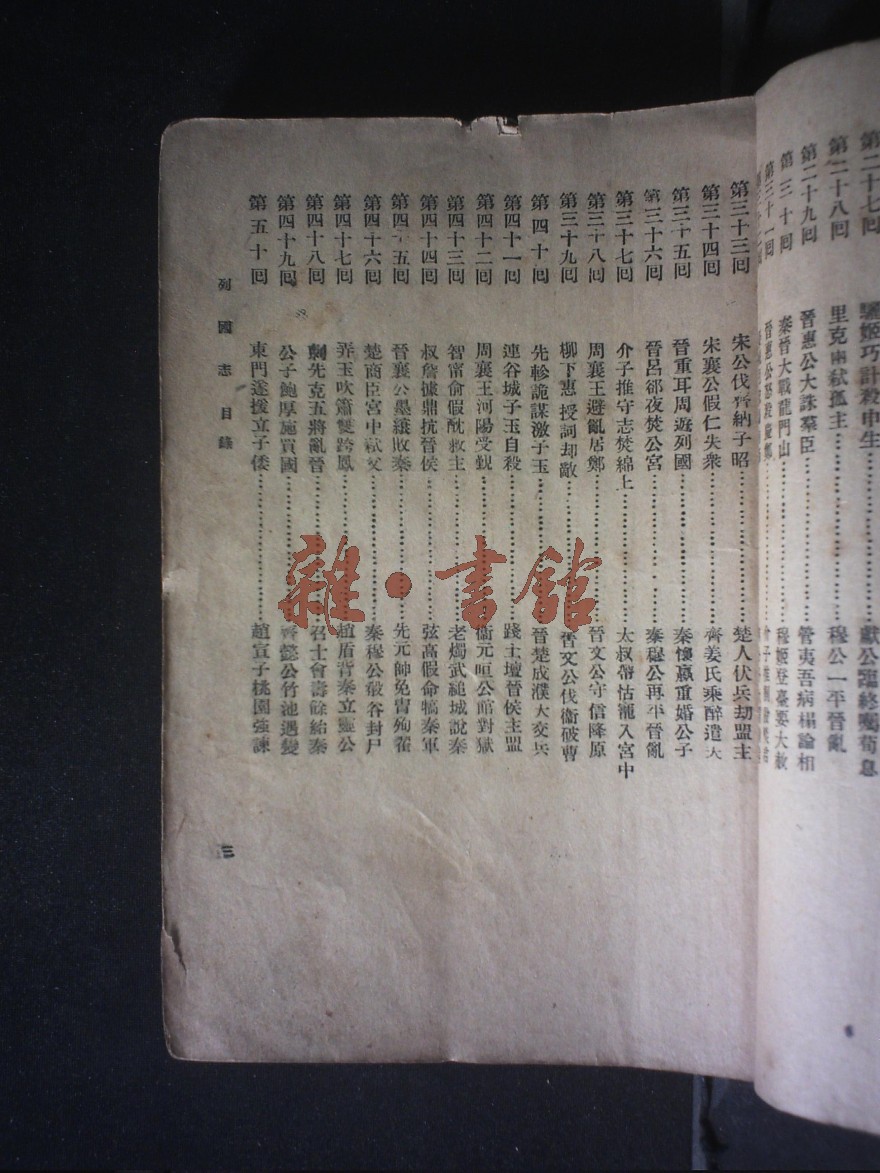 第二十七回 驪姬巧計殺申生……獻公臨終囑荀息
第二十八回 里克兩弒孤主……穆公一平晉亂
第二十九回 晉惠公大誅羣臣……管夷吾病榻論相
第三十回 秦晉大戰龍門山……穆姬登臺要大赦
第三十一回 晉惠公怒殺慶鄭
第三十三回 宋公伐齊納子昭……楚人伏兵刧盟主
第三十四回 宋襄公假仁失衆……齊姜氏乘醉遣夫
第三十五回 晉重耳周遊列國……秦懷嬴重婚公子
第三十六回 晉呂郤夜焚公宮……秦穆公再平晉亂
第三十七回 介子推守志焚綿上……太叔帶怙寵入宮中
第三十八回 周襄王避亂居鄭……晉文公守信降原
第三十九回 柳下惠授詞却敵……晉文公伐衞破曹
第四十回 先軫詭謀激子玉……晉楚成濮大交兵
第四十一回 連谷城子玉自殺……踐土壇晉侯主盟
第四十二回 周襄王河陽受覲……衞元咺公館對獄
第四十三回 智甯俞假酖救主……老燭武縋城說秦
第四十四回 叔詹據鼎抗晉侯……弦高假命犒秦軍
第四十五回 晉襄公墨縗敗秦……先元帥免胄殉翟
第四十六回 楚商臣宮中弒父……秦穆公殽谷封尸
第四十七回 弄玉吹簫雙跨鳳……趙盾背秦立靈公
第四十八回 刺先克五將亂晉……召士會壽餘紿秦
第四十九回 公子鮑厚施買國……齊懿公竹池遇變
第五十回 東門遂援立子倭……趙宣子桃園強諫
列國志目錄
三
雜·書館